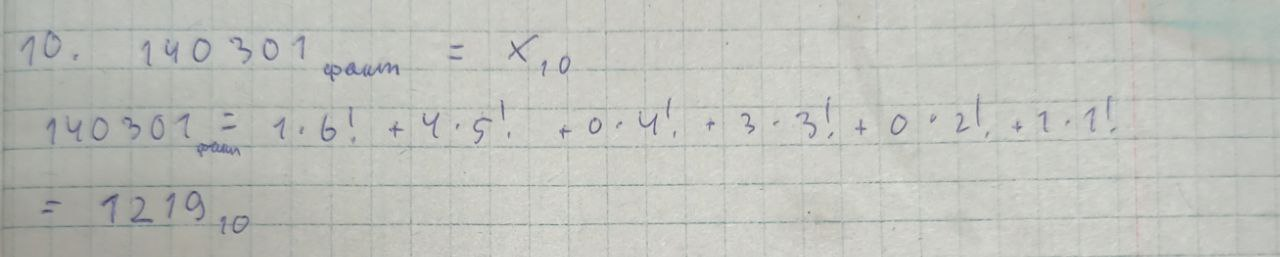 10. 140301факт = X10
140301факт = 1·6! + 4·5! + 0·4! + 3·3! + 0·2! + 1·1!
= 121910